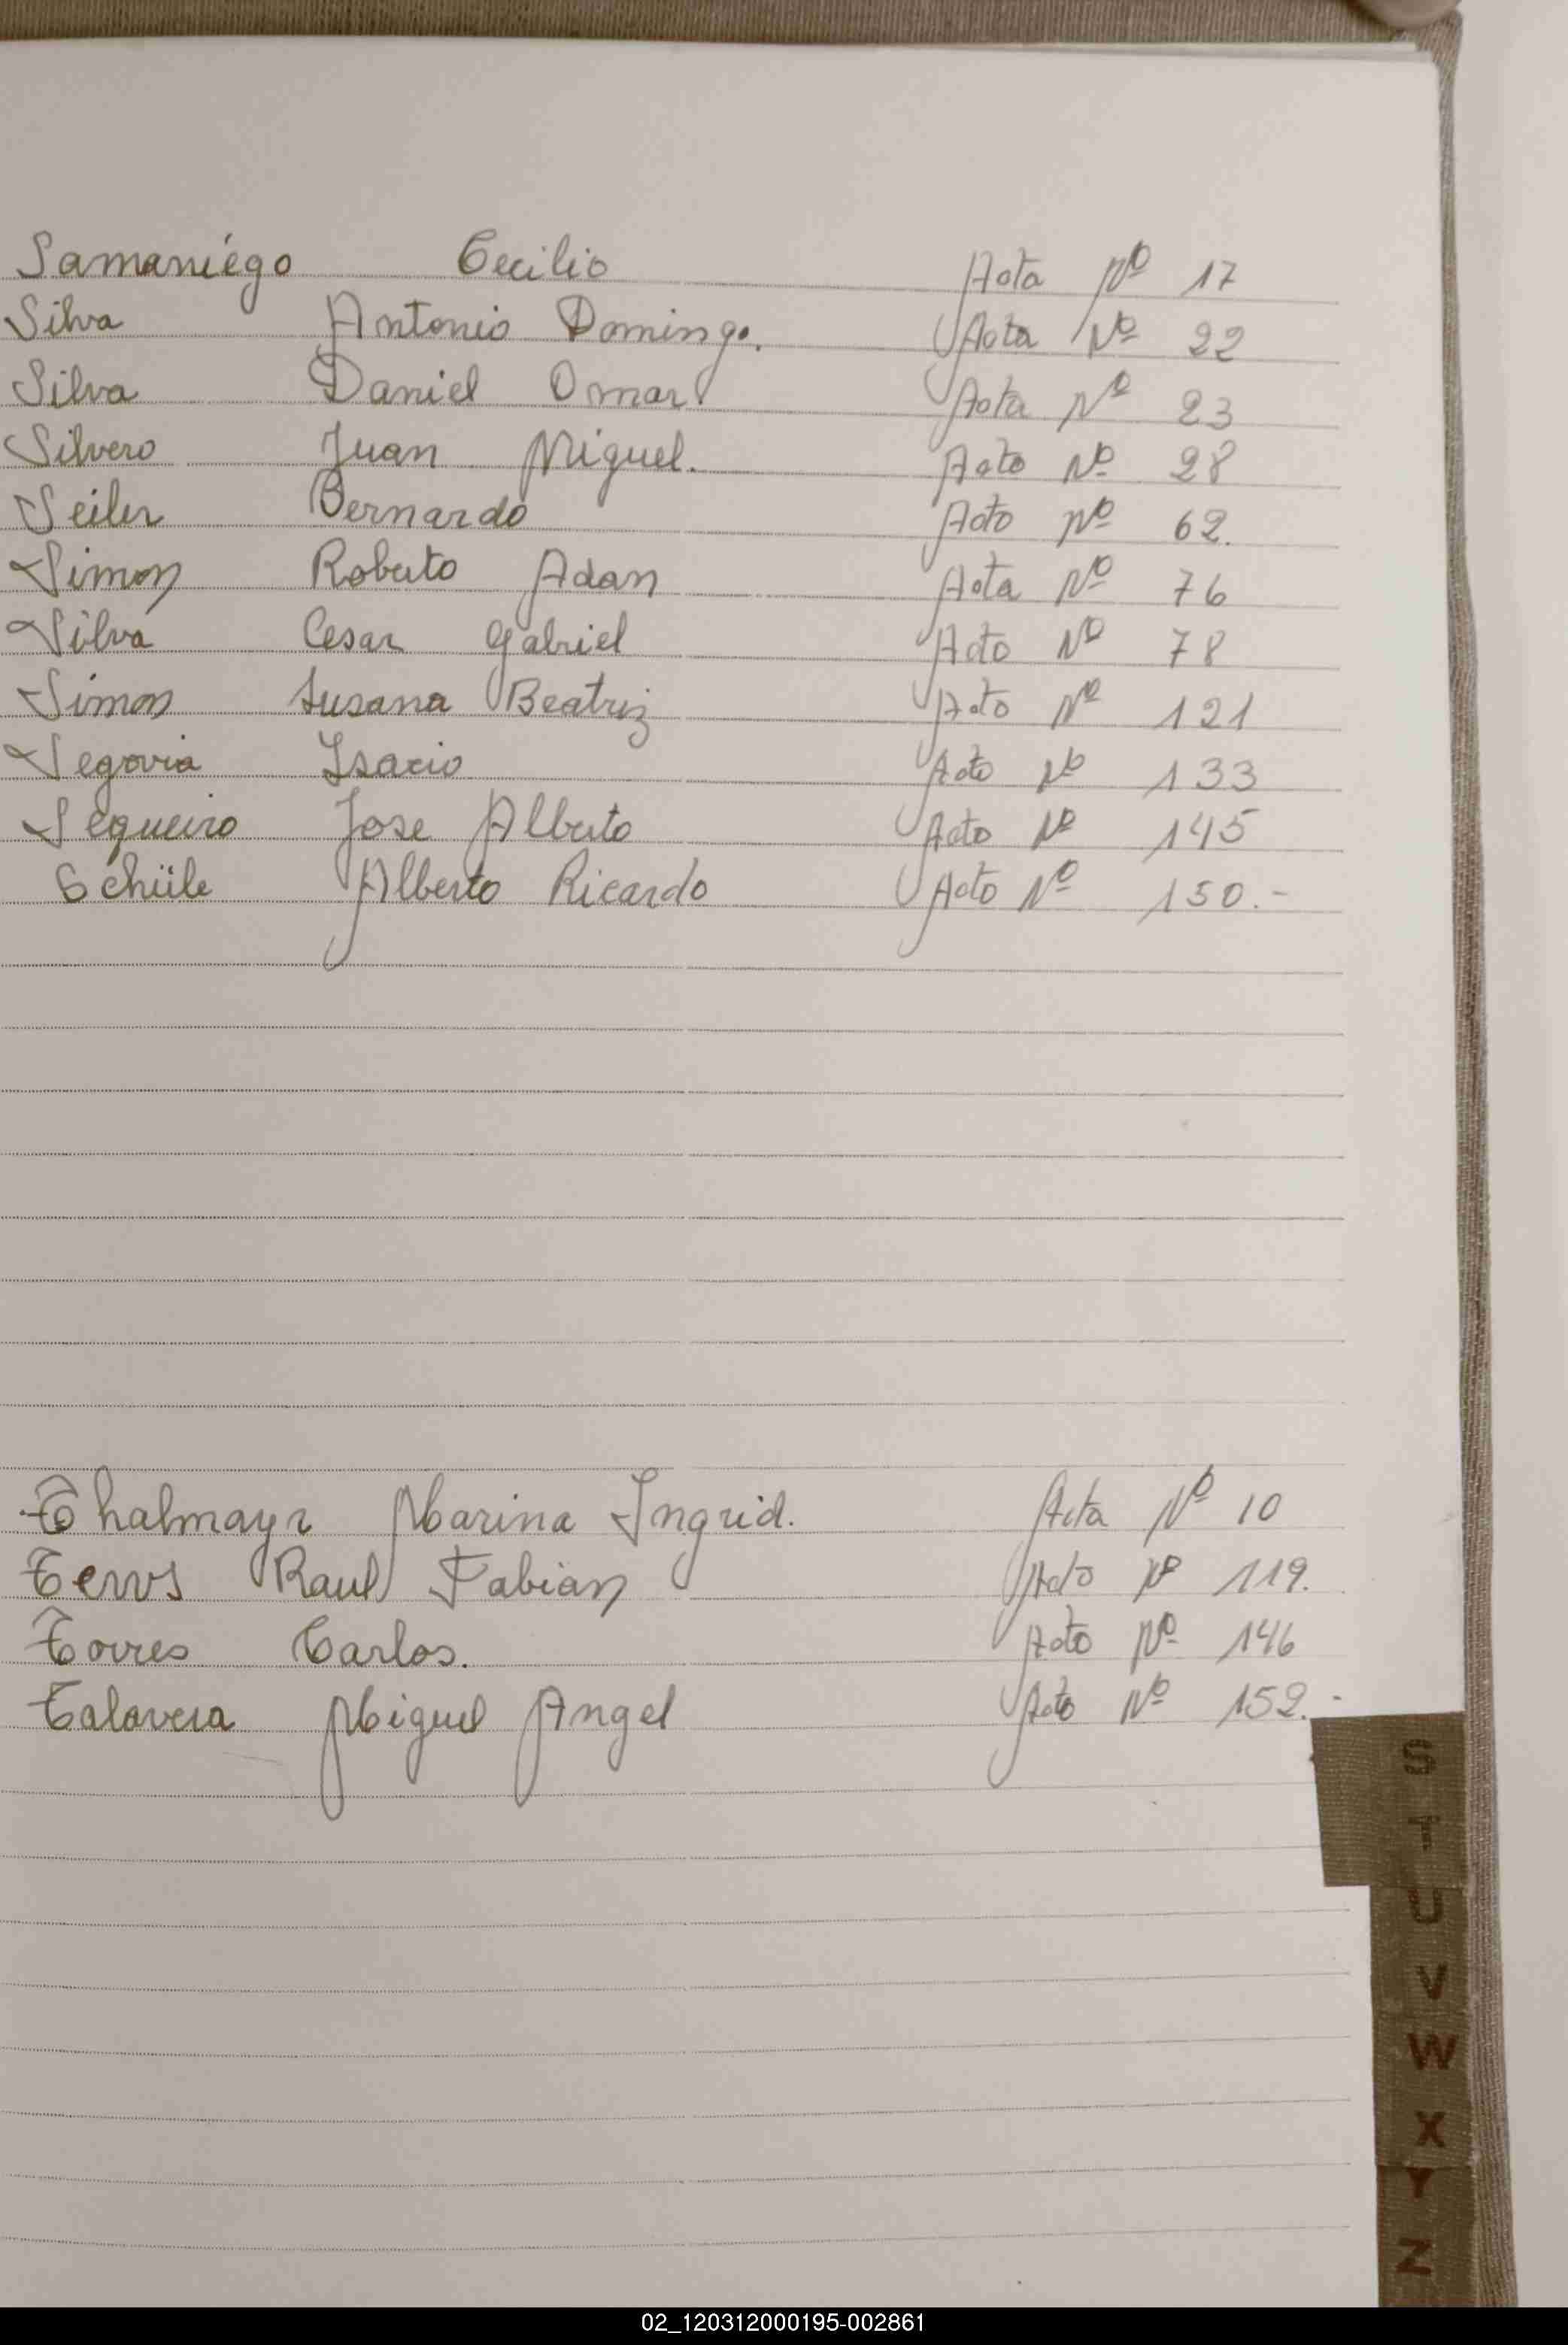 Samaniego Cecilio Acta Nº 17
Silva Antonio Domingo. Acta Nº 22
Silva Daniel Omar Acta Nº 23
Silvero Juan Miguel. Acta Nº 28
Seiler Bernardo Acta Nº 62.
Simon Roberto Adan Acta Nº 76
Silva Cesar Gabriel Acta Nº 78
Simon Susana Beatriz Acta Nº 121
Segovia Isacio Acta Nº 133
Sequeiro Jose Alberto Acta Nº 145
Schüle Alberto Ricardo Acta Nº 150.-
Thalmayr Marina Ingrid. Acta Nº 10
Raul Fabian Acta Nº 119.
Torres Carlos. Acta Nº 146
Talavera Miguel Angel Acta Nº 152.-
S
T
U
V
W
X
Y
Z
02_120312000195-002861